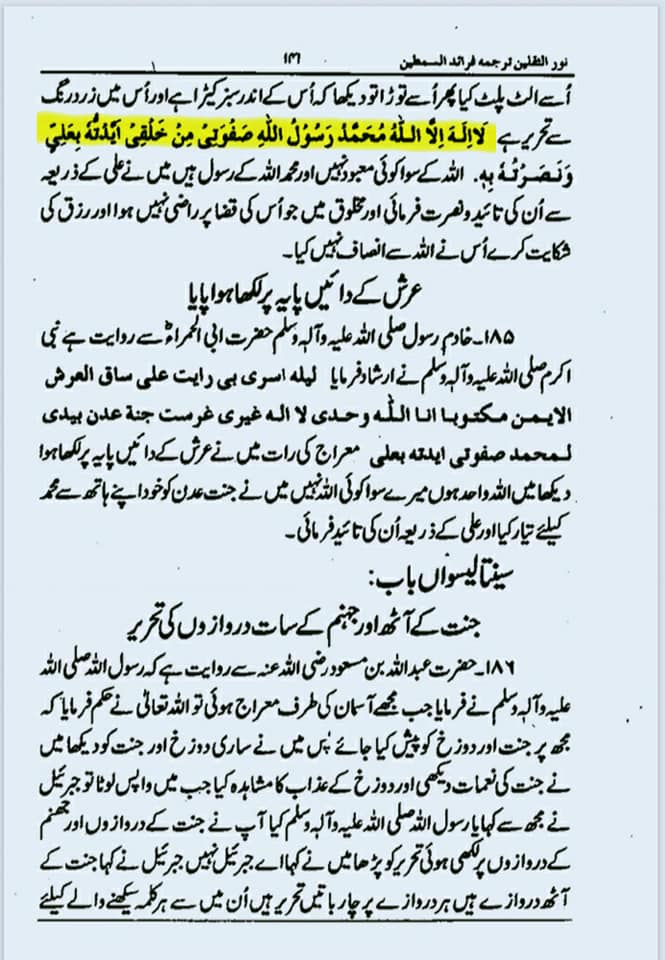 نور الثقلین ترجمہ فرائد السمطین ۱۴۱
اُسے الٹ پلٹ کیا پھر اُسے توڑا تو دیکھا کہ اُس کے اندر سبز کپڑا ہے اور اُس میں زرد رنگ
سے تحریر ہے لَا اِلٰہَ اِلَّا اللّٰہُ مُحَمَّدٌ رَسُوْلُ اللّٰہِ صَفْوَتِیْ مِنْ خَلْقِیْ اَیَّدْتُّہٗ بِعَلِیٍّ
وَنَصَرْتُہٗ بِہٖ۔ اللہ کے سوا کوئی معبود نہیں اور محمد اللہ کے رسول ہیں میں نے علی کے ذریعہ
سے اُن کی تائید و نصرت فرمائی اور مخلوق میں جو اُس کی قضا پر راضی نہیں ہوا اور رزق کی
شکایت کرے اُس نے اللہ سے انصاف نہیں کیا۔
عرش کے دائیں پایہ پر لکھا ہوا پایا
۱۸۵۔ خادم رسول صلی اللہ علیہ وآلہٖ وسلم حضرت ابی الحمراءؓ سے روایت ہے نبی
اکرم صلی اللہ علیہ وآلہٖ وسلم نے ارشاد فرمایا لیلہ اسری بی رایت علی ساق العرش
الایمن مکتوبا انا اللّٰہ وحدی لا الہ غیری غرست جنۃ عدن بیدی
لمحمد صفوتی ایدتہ بعلی معراج کی رات میں نے عرش کے دائیں پایہ پر لکھا ہوا
دیکھا میں اللہ واحد ہوں میرے سوا کوئی اللہ نہیں میں نے جنت عدن کو خود اپنے ہاتھ سے محمد
کیلئے تیار کیا اور علی کے ذریعہ اُن کی تائید فرمائی۔
سینتالیسواں باب:
جنت کے آٹھ اور جہنم کے سات دروازوں کی تحریر
۱۸۶۔ حضرت عبداللہ بن مسعود رضی اللہ عنہ سے روایت ہے کہ رسول اللہ صلی اللہ
علیہ وآلہٖ وسلم نے فرمایا جب مجھے آسمان کی طرف معراج ہوئی تو اللہ تعالیٰ نے حکم فرمایا کہ
مجھ پر جنت اور دوزخ کو پیش کیا جائے پس میں نے ساری دوزخ اور جنت کو دیکھا میں
نے جنت کی نعمات دیکھی اور دوزخ کے عذاب کا مشاہدہ کیا جب میں واپس لوٹا تو جبرئیل
نے مجھ سے کہا یا رسول اللہ صلی اللہ علیہ وآلہٖ وسلم کیا آپ نے جنت کے دروازوں اور جہنم
کے دروازوں پر لکھی ہوئی تحریر کو پڑھا میں نے کہا اے جبرئیل نہیں جبرئیل نے کہا جنت کے
آٹھ دروازے ہیں ہر دروازے پر چار باتیں تحریر ہیں اُن میں سے ہر کلمہ سیکھنے والے کیلئے